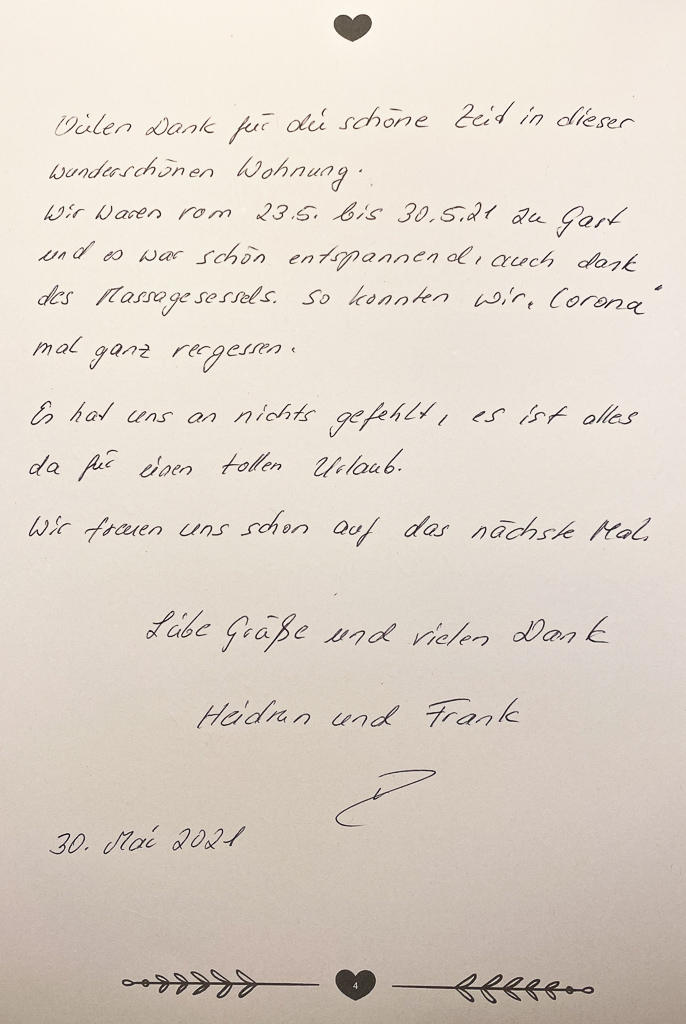 Vielen Dank für die schöne Zeit in dieser
wunderschönen Wohnung.
Wir waren vom 23.5. bis 30.5.21 zu Gast
und es war schön entspannend, auch dank
des Massagesessels. So konnten wir „Corona“
mal ganz vergessen.
Es hat uns an nichts gefehlt, es ist alles
da für einen tollen Urlaub.
Wir freuen uns schon auf das nächste Mal.
Liebe Grüße und vielen Dank
Heidrun und Frank
30. Mai 2021
4